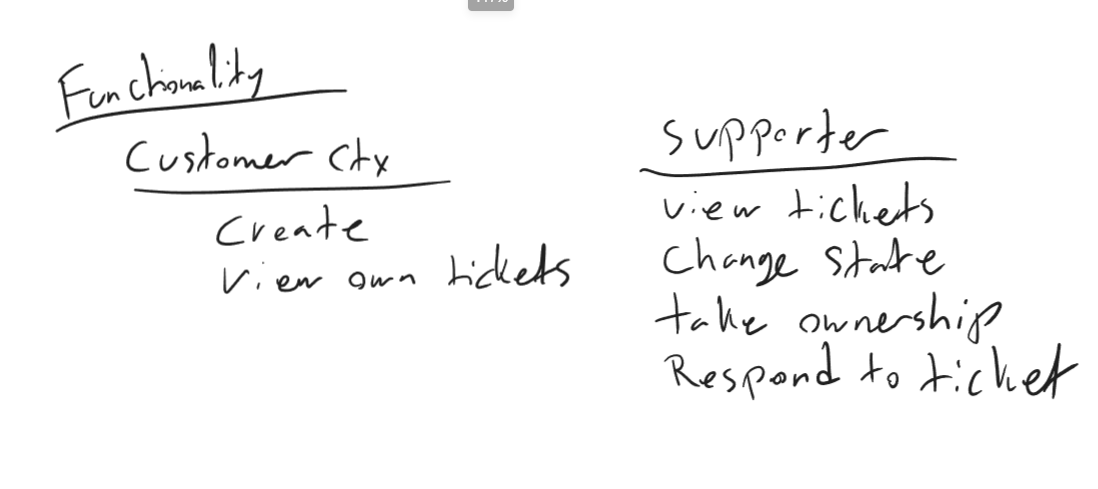 Functionality
Customer Ctx
Create
View own tickets
Supporter
view tickets
Change state
take ownership
Respond to ticket